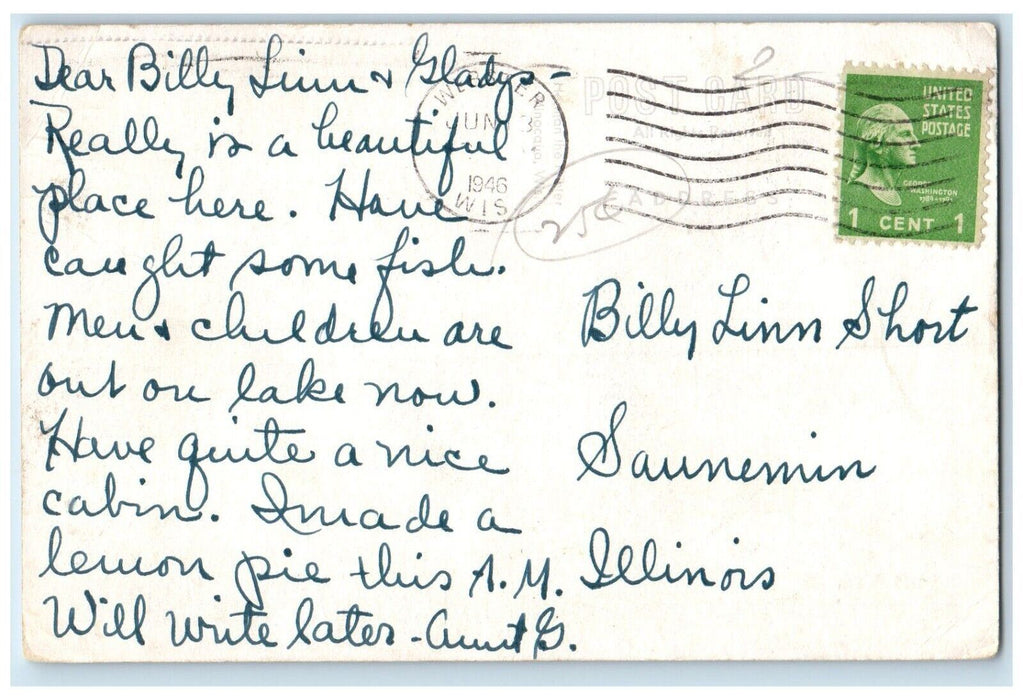 Dear Billy Linn & Gladys -
Really is a beautiful
place here. Have
caught some fish.
Men & children are
out on lake now.
Have quite a nice
cabin. I made a
lemon pie this A.M.
Will write later - Aunt G.
WEBSTER
JUN 3
1946
WIS
POST CARD
ADDRESS
25¢
UNITED
STATES
POSTAGE
GEORGE
WASHINGTON
1 CENT 1
Billy Linn Short
Saunemin
Illinois